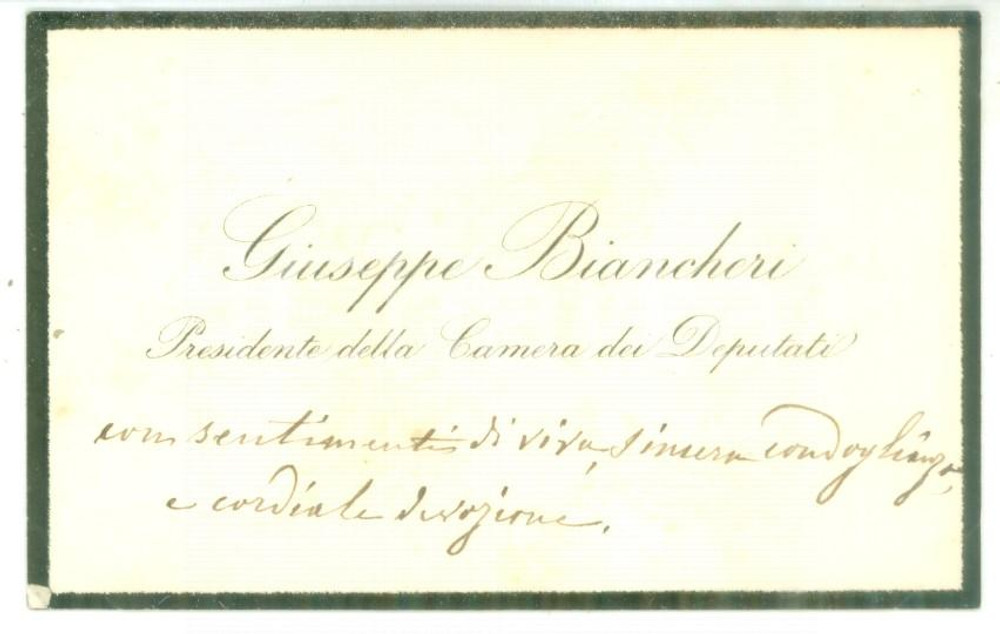 Giuseppe Biancheri
Presidente della Camera dei Deputati
con sentimenti di viva, sincera condoglianza,
e cordiale devozione.